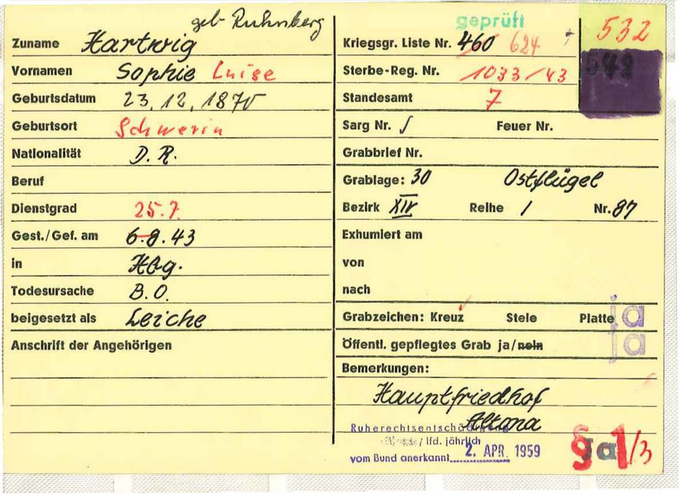 geb. Ruhnberg
Zuname Hartwig
Vornamen Sophie Luise
Geburtsdatum 23.12.1870
Geburtsort Schwerin
Nationalität D.R.
Beruf
Dienstgrad 25.7.
Gest./Gef. am 6.8.43
in Hbg.
Todesursache B.O.
beigesetzt als Leiche
Anschrift der Angehörigen
geprüft
Kriegsgr. Liste Nr. 460 624
532
Sterbe-Reg. Nr. 1033/43
Standesamt 7
Sarg Nr. Feuer Nr.
Grabbrief Nr.
Grablage: 30 Ostflügel
Bezirk XIV Reihe 1 Nr. 87
Exhumiert am
von
nach
Grabzeichen: Kreuz Stele Platte ja
Öffentl. gepflegtes Grab ja/nein ja
Bemerkungen:
Hauptfriedhof
Altona
Ruherechtsentschädigung
/ lfd. jährlich
vom Bund anerkannt 2. APR. 1959
§ 1/3